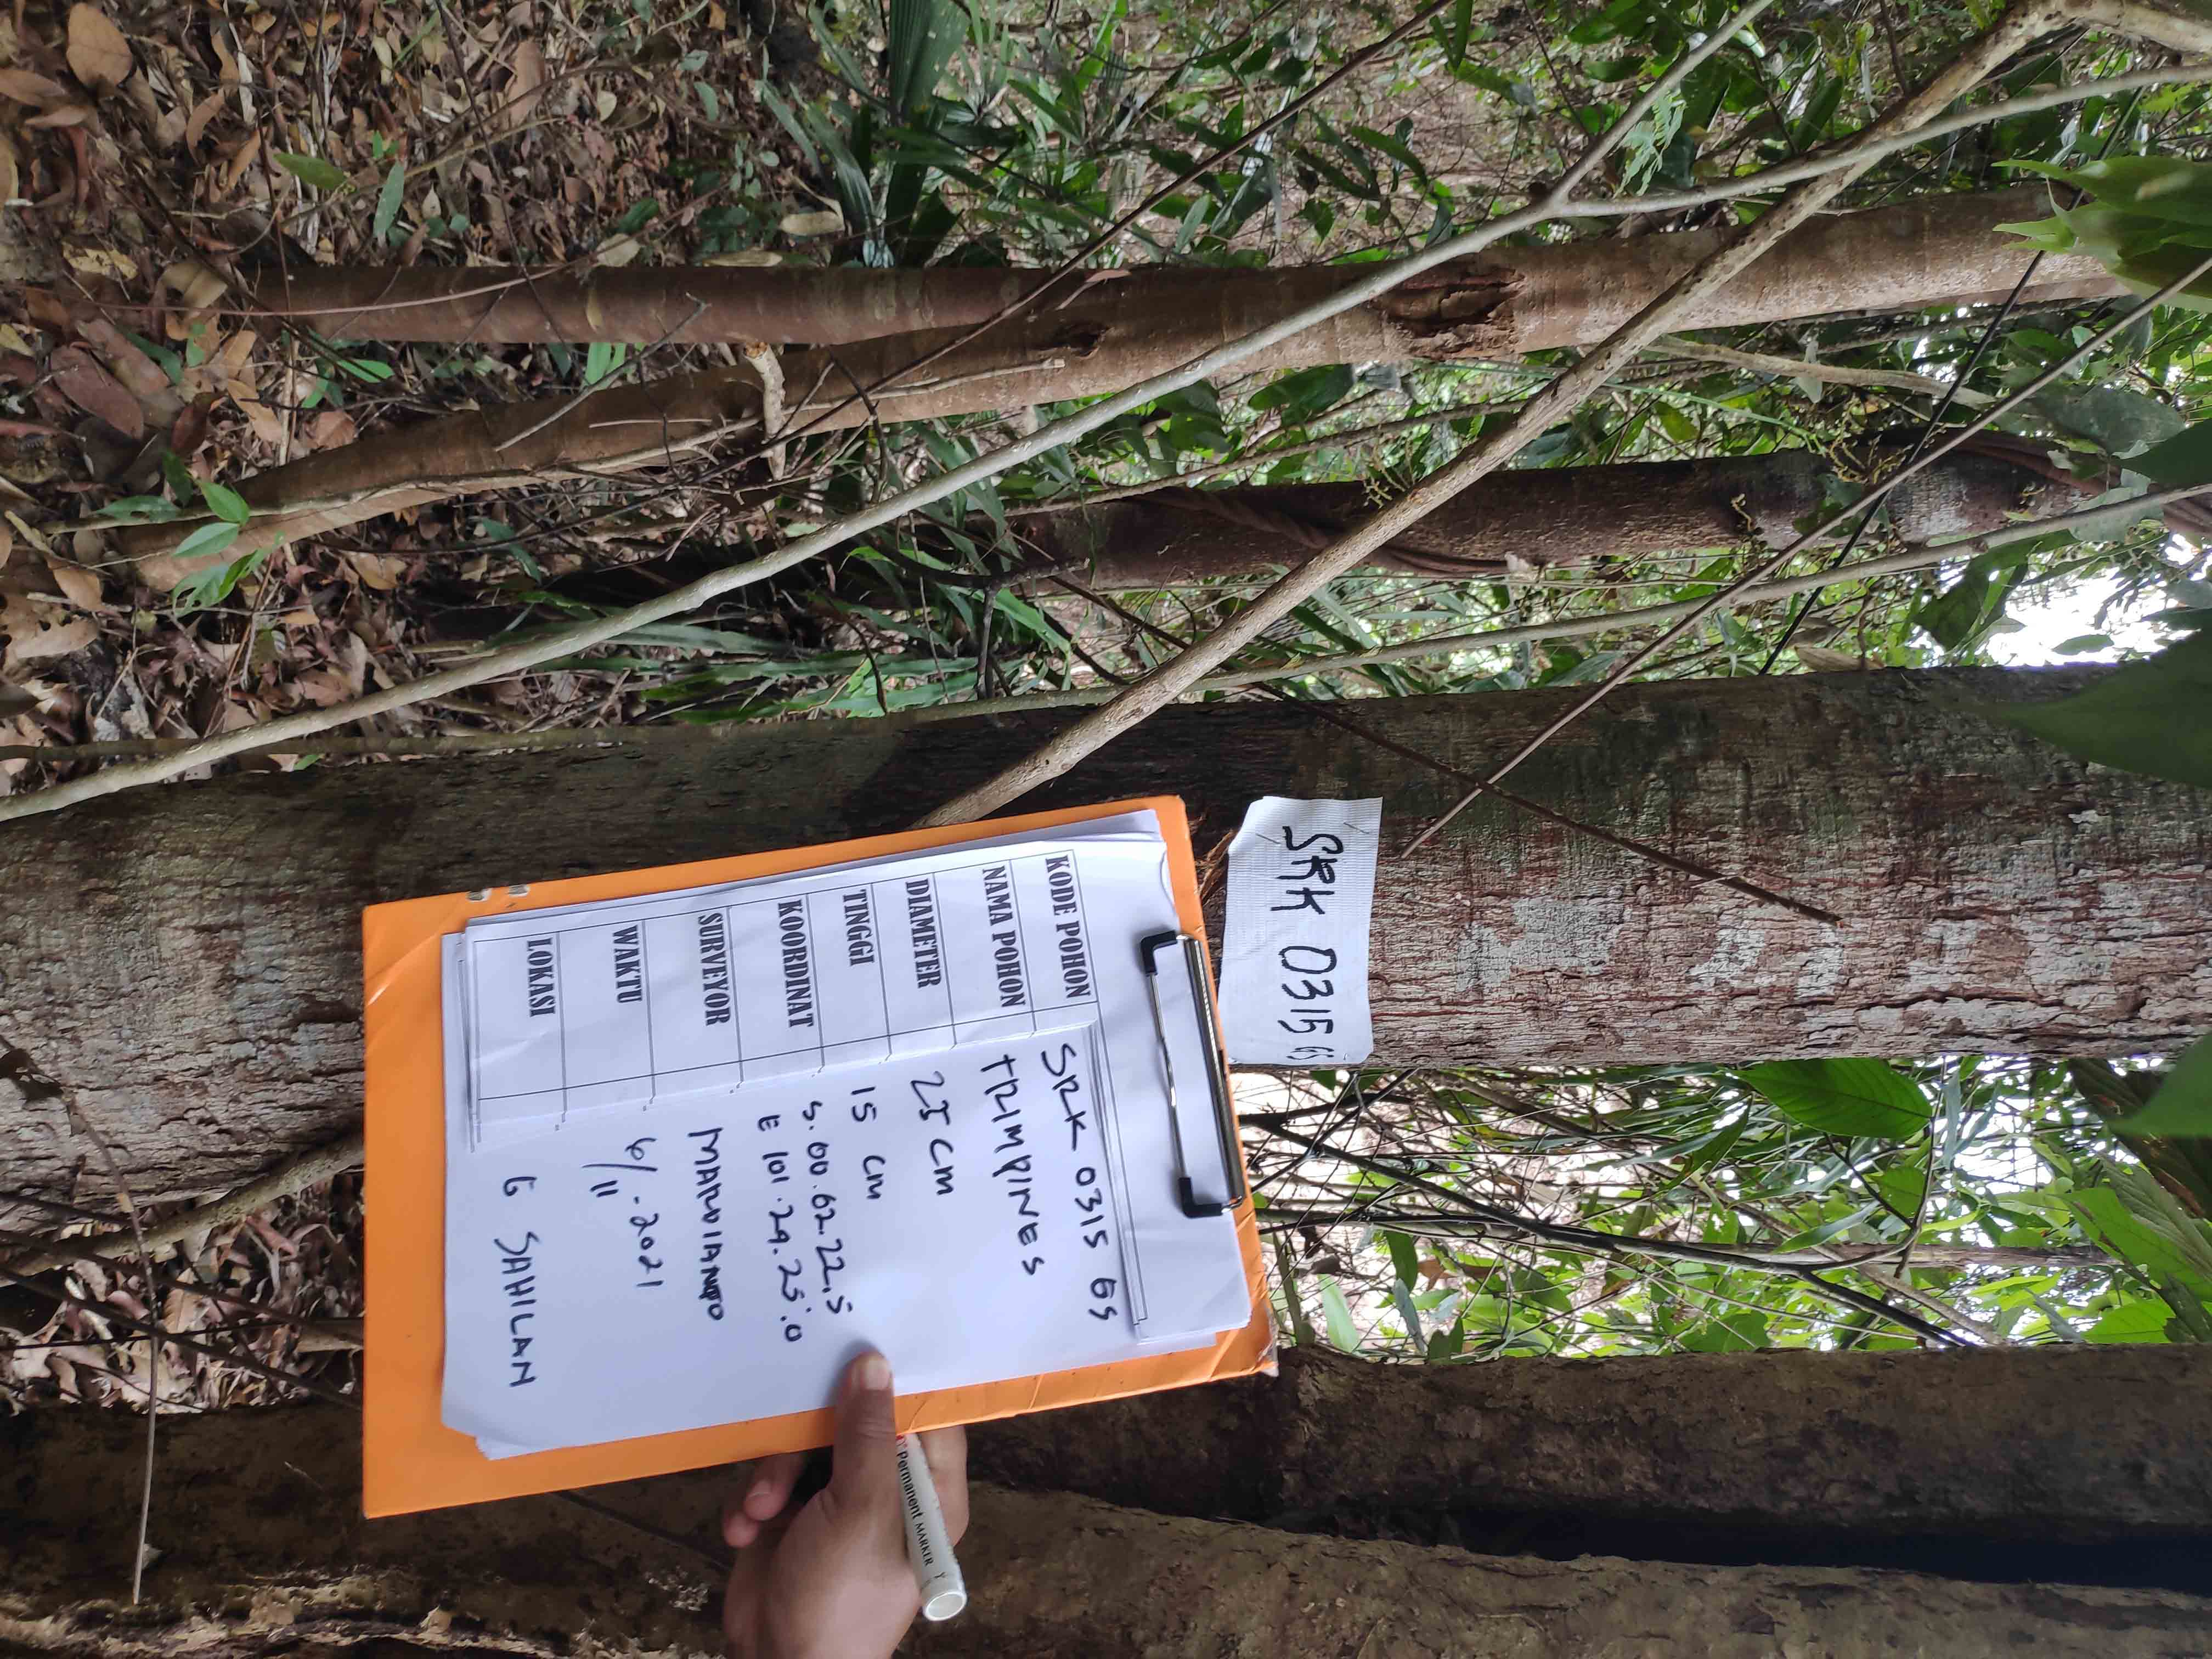 SRK 0315 GS
KODE POHON SRK 0315 GS
NAMA POHON TRIMPINES
DIAMETER 25 CM
TINGGI 15 CM
KOORDINAT S. 00.02.22,5
E 101.29.25.0
SURVEYOR MARDIANTO
WAKTU 6/11-2021
LOKASI G SAHILAN
Permanent MARKER